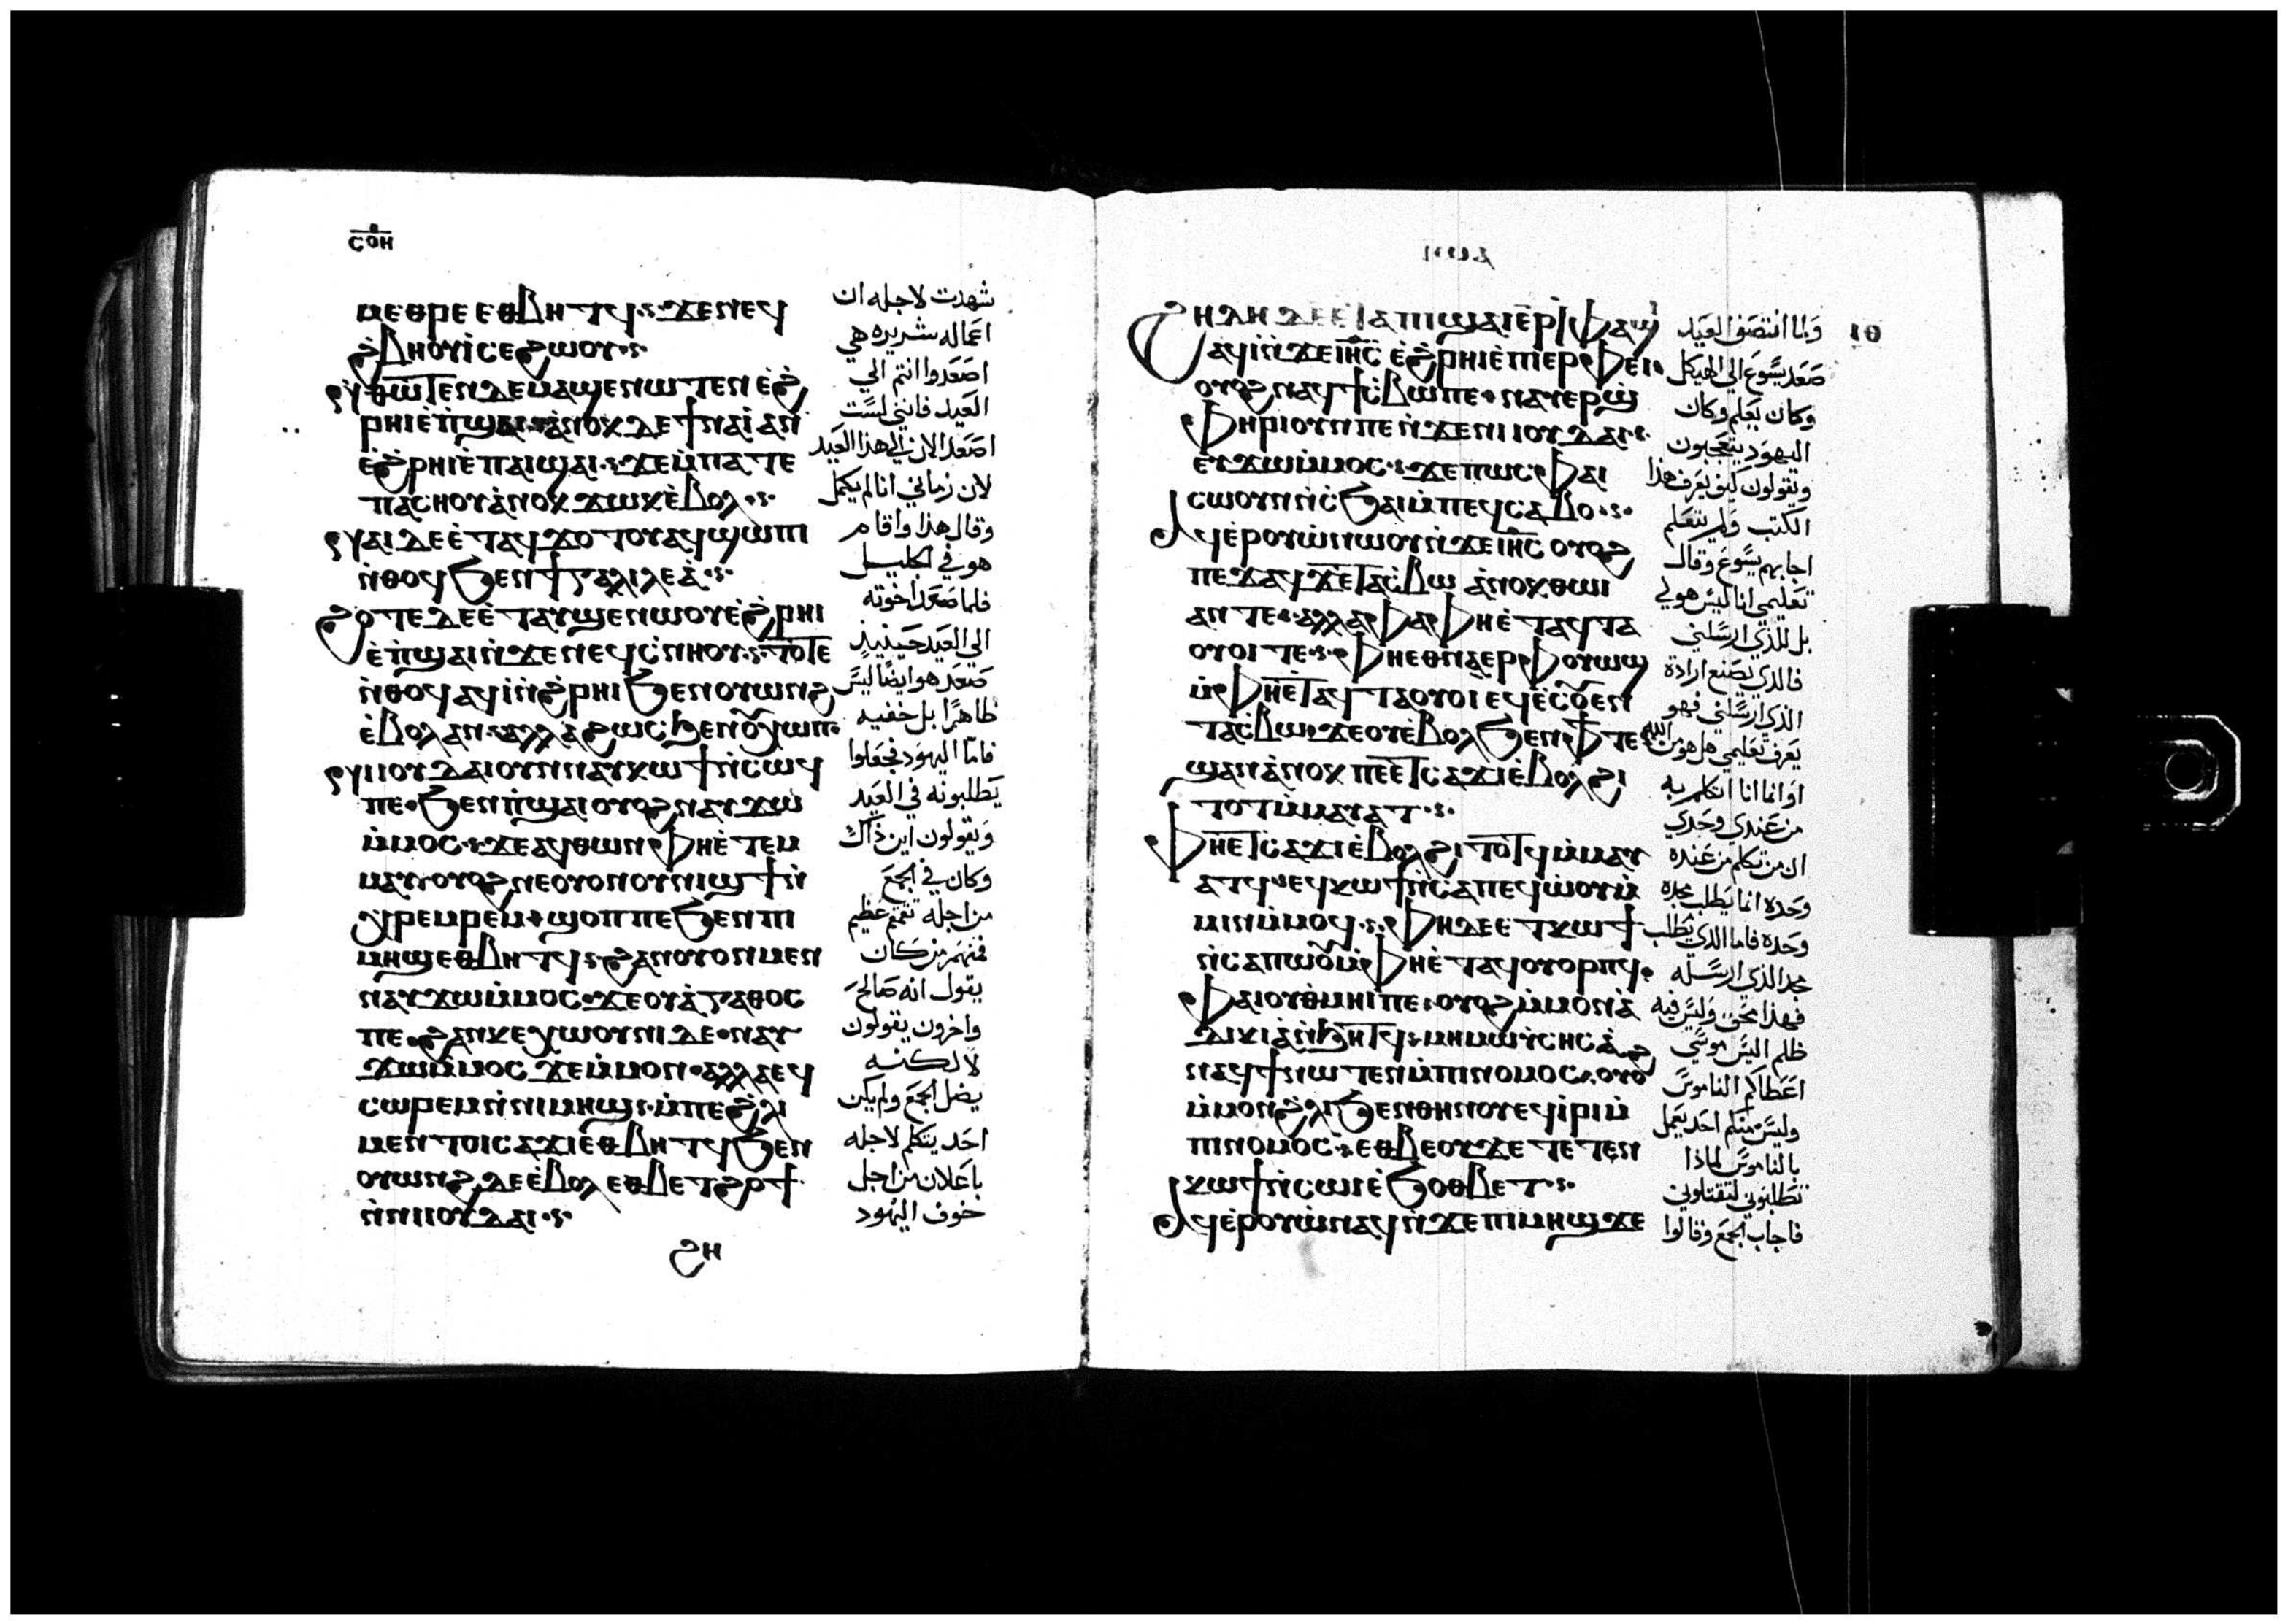 ⲥⲟⲏ
ⲙⲉⲑⲣⲉ ⲉⲑⲃⲏⲧϥ ϫⲉ ⲛⲉϥ
ϩⲃⲏⲟⲩⲓ ⲥⲉϩⲱⲟⲩ
ⲛ̇ⲑⲱⲧⲉⲛ ⲇⲉ ⲙⲁϣⲉⲛⲱⲧⲉⲛ ⲉ̇ϩ
ⲣⲏⲓ ⲉ̇ⲡ̇ϣⲁⲓ ⲁ̇ⲛⲟⲕ ⲇⲉ ϯⲛⲁⲓ̇ ⲁⲛ
ⲉ̇ϩⲣⲏⲓ ⲉ̇ⲡⲁⲓϣⲁⲓ ϫⲉ ⲙ̇ⲡⲁⲧⲉ
ⲡⲁⲥⲏⲟⲩ ⲁ̇ⲛⲟⲕ ϫⲱⲕ ⲉ̇ⲃⲟⲗ
ⲛⲁⲓ ⲇⲉ ⲉ̇ⲧⲁϥϫⲟⲧⲟⲩ ⲁϥϣⲱⲡⲓ
ⲛ̇ⲑⲟϥ ϧⲉⲛ ϯⲅⲁⲗⲓⲗⲉⲁ̇
ϩⲟⲧⲉ ⲇⲉ ⲉ̇ⲧⲁⲩϣⲉⲛⲱⲟⲩ ⲉ̇ϩⲣⲏⲓ
ⲉ̇ⲡ̇ϣⲁⲓ ⲛ̇ϫⲉ ⲛⲉϥⲥ̇ⲛⲏⲟⲩ ⲧⲟⲧⲉ
ⲛ̇ⲑⲟϥ ⲁϥⲓ̇ ⲛ̇ϩⲣⲏⲓ ϧⲉⲛ ⲟⲩⲱⲛϩ
ⲉ̇ⲃⲟⲗ ⲁⲛ ⲁⲗⲗⲁ ϩⲱⲥ ϧⲉⲛ ⲟⲩⲭⲱⲡ
ⲛⲓⲓⲟⲩⲇⲁⲓ ⲟⲩⲛ ⲛⲁⲩⲕⲱϯ ⲛ̇ⲥⲱϥ
ⲡⲉ ϧⲉⲛ ⲡ̇ϣⲁⲓ ⲟⲩⲟϩ ⲛⲁⲩϫⲱ
ⲙ̇ⲙⲟⲥ ϫⲉ ⲁϥⲑⲱⲛ ⲫⲏⲉ̇ⲧⲉⲙ
ⲙⲁⲩ ⲟⲩⲟϩ ⲛⲉ ⲟⲩⲟⲛ ⲟⲩⲛⲓϣϯ ⲛ̇
ⲭⲣⲉⲙⲣⲉⲙ ϣⲟⲡ ⲡⲉ ϧⲉⲛ ⲡⲓ
ⲙⲏϣ ⲉⲑⲃⲏⲧϥ ϩⲁⲛⲟⲩⲟⲛ ⲙⲉⲛ
ⲛⲁⲩϫⲱ ⲙ̇ⲙⲟⲥ ϫⲉ ⲟⲩⲁ̇ⲅⲁⲑⲟⲥ
ⲡⲉ ϩⲁⲛⲕⲉⲭⲱⲟⲩⲛⲓ ⲇⲉ ⲛⲁⲩ
ϫⲱ ⲙ̇ⲙⲟⲥ ϫⲉ ⲙ̇ⲙⲟⲛ ⲁⲗⲗⲁ ⲉϥ
ⲥⲱⲣⲉⲙ ⲛ̇ⲛⲓⲙⲏϣ ⲙ̇ⲡⲉ ϩ̇ⲗⲓ
ⲙⲉⲛⲧⲟⲓ ⲥⲁϫⲓ ⲉⲑⲃⲏⲧϥ ϧⲉⲛ
ⲟⲩⲱⲛϩ ⲇⲉ ⲉ̇ⲃⲟⲗ ⲉⲑⲃⲉ ⲧ̇ϩⲟϯ
ⲛ̇ⲛⲓⲓⲟⲩⲇⲁⲓ
ϩⲏ
شهدت لاجله ان
اعماله شريره هي
اصعدوا انتم الي
العيد فانني لست
اصعد الان الي هذا العيد
لان زماني انا لم يكمل
وقال هذا واقام
هو في الجليل
فلما صعد اخوته
الي العيد حينيذ
صعد هو ايضا ليس
ظاهرا بل خفيه
فاما اليهود فجعلوا
يطلبونه في العيد
ويقولون اين ذاك
وكان في الجمع
من اجله تقمقم عظيم
فمنهم من كان
يقول انه صالح
واخرون يقولون
لا لكنه
يضل الجمع ولم يكن
احد يتكلم لاجله
باعلان من اجل
خوف اليهود
ϩⲏⲇⲏ ⲇⲉ ⲉ̇ⲧⲁ ⲡⲓϣⲁⲓ ⲉⲣⲫⲁϣⲓ
ⲁϥⲓ̇ ⲛ̇ϫⲉ ⲓⲏⲥ ⲉ̇ϩⲣⲏⲓ ⲉ̇ⲡⲓⲉⲣⲫⲉⲓ
ⲟⲩⲟϩ ⲛⲁϥϯⲥ̇ⲃⲱ ⲡⲉ ⲛⲁⲩⲉⲣϣ̇
ⲫⲏⲣⲓ ⲟⲩⲛ ⲡⲉ ⲛ̇ϫⲉ ⲛⲓⲓⲟⲩⲇⲁⲓ
ⲉⲩϫⲱ ⲙ̇ⲙⲟⲥ ϫⲉ ⲡⲱⲥ ⲫⲁⲓ
ⲥⲱⲟⲩⲛ ⲛ̇ⲥ̇ϧⲁⲓ ⲙ̇ⲡⲉϥⲥⲁⲃⲟ
ⲁϥⲉ̇ⲣⲟⲩⲱ̇ ⲛⲱⲟⲩ ⲛ̇ϫⲉ ⲓⲏⲥ ⲟⲩⲟϩ
ⲡⲉϫⲁϥ ϫⲉ ⲧⲁⲥ̇ⲃⲱ ⲁ̇ⲛⲟⲕ ⲑⲱⲓ
ⲁⲛ ⲧⲉ ⲁⲗⲗⲁ ⲫⲁ ⲫⲏⲉ̇ⲧⲁϥⲧⲁ
ⲟⲩⲟⲓ ⲧⲉ ⲫⲏⲉⲑⲛⲁⲉⲣ ⲫⲟⲩⲱϣ
ⲙ̇ⲫⲏⲉ̇ⲧⲁϥⲧⲁⲟⲩⲟⲓ ⲉϥⲉ̇ⲥⲟⲩⲉⲛ
ⲧⲁⲥ̇ⲃⲱ ϫⲉ ⲟⲩⲉ̇ⲃⲟⲗ ϧⲉⲛ ⲫϯ ⲧⲉ
ϣⲁⲛ ⲁ̇ⲛⲟⲕ ⲡⲉⲉ̇ⲧⲥⲁϫⲓ ⲉ̇ⲃⲟⲗ ϩⲓ
ⲧⲟⲧ ⲙ̇ⲙⲁⲩⲁⲧ
ⲫⲏⲉ̇ⲧⲥⲁϫⲓ ⲉ̇ⲃⲟⲗ ϩⲓⲧⲟⲧϥ ⲙ̇ⲙⲁⲩ
ⲁⲧϥ ⲉϥⲕⲱϯ ⲛ̇ⲥⲁ ⲡⲉϥⲱ̇ⲟⲩ ⲙ̇
ⲙⲓⲛ ⲙ̇ⲙⲟϥ ⲫⲏ ⲇⲉ ⲉ̇ⲧⲕⲱϯ
ⲛ̇ⲥⲁ ⲡⲱ̇ⲟⲩ ⲙ̇ⲫⲏⲉ̇ⲧⲁϥⲟⲩⲟⲣⲡϥ
ⲫⲁⲓ ⲟⲩⲑ̇ⲙⲏⲓ ⲡⲉ ⲟⲩⲟϩ ⲙ̇ⲙⲟⲛ ⲁ̇
ⲇⲓⲕⲓⲁ̇ ⲛ̇ϧⲏⲧϥ ⲙⲏ ⲙⲱⲩⲥⲏⲥ ⲁⲛ
ⲛⲁϥϯ ⲛⲱⲧⲉⲛ ⲙ̇ⲡⲓⲛⲟⲙⲟⲥ ⲟⲩⲟϩ
ⲙ̇ⲙⲟⲛ ϩ̇ⲗⲓ ϧⲉⲛ ⲑⲏⲛⲟⲩ ⲉϥⲓ̇ⲣⲓ ⲙ̇
ⲡⲓⲛⲟⲙⲟⲥ ⲉⲑⲃⲉ ⲟⲩ ϫⲉ ⲧⲉⲧⲉⲛ
ⲕⲱϯ ⲛ̇ⲥⲱⲓ ⲉ̇ϧⲟⲑⲃⲉⲧ
ⲁϥⲉ̇ⲣⲟⲩⲱ̇ ⲛⲁϥ ⲛ̇ϫⲉ ⲡⲓⲙⲏϣ ϫⲉ
ولما انتصف العيد
صعد يسوع الي الهيكل
وكان يعلم وكان
اليهود يتعجبون
ويقولون كيف يعرف هذا
الكتب ولم يتعلم
اجابهم يسوع وقال
تعليمي انا ليس هو لي
بل للذي ارسلني
فالذي يصنع ارادة
الذي ارسلني فهو
يعرف تعليمي هل هو من الله
او انما انا اتكلم به
من عندي وحدي
ان من تكلم من عنده
وحده انما يطلب مجده
وحده فاما الذي يطلب
مجد الذي ارسله
فهذا محق وليس فيه
ظلم اليس موسي
اعطاكم الناموس
وليس منكم احد يعمل
بالناموس لماذا
تطلبوني لتقتلوني
فاجاب الجمع وقالوا
ⲓⲑ